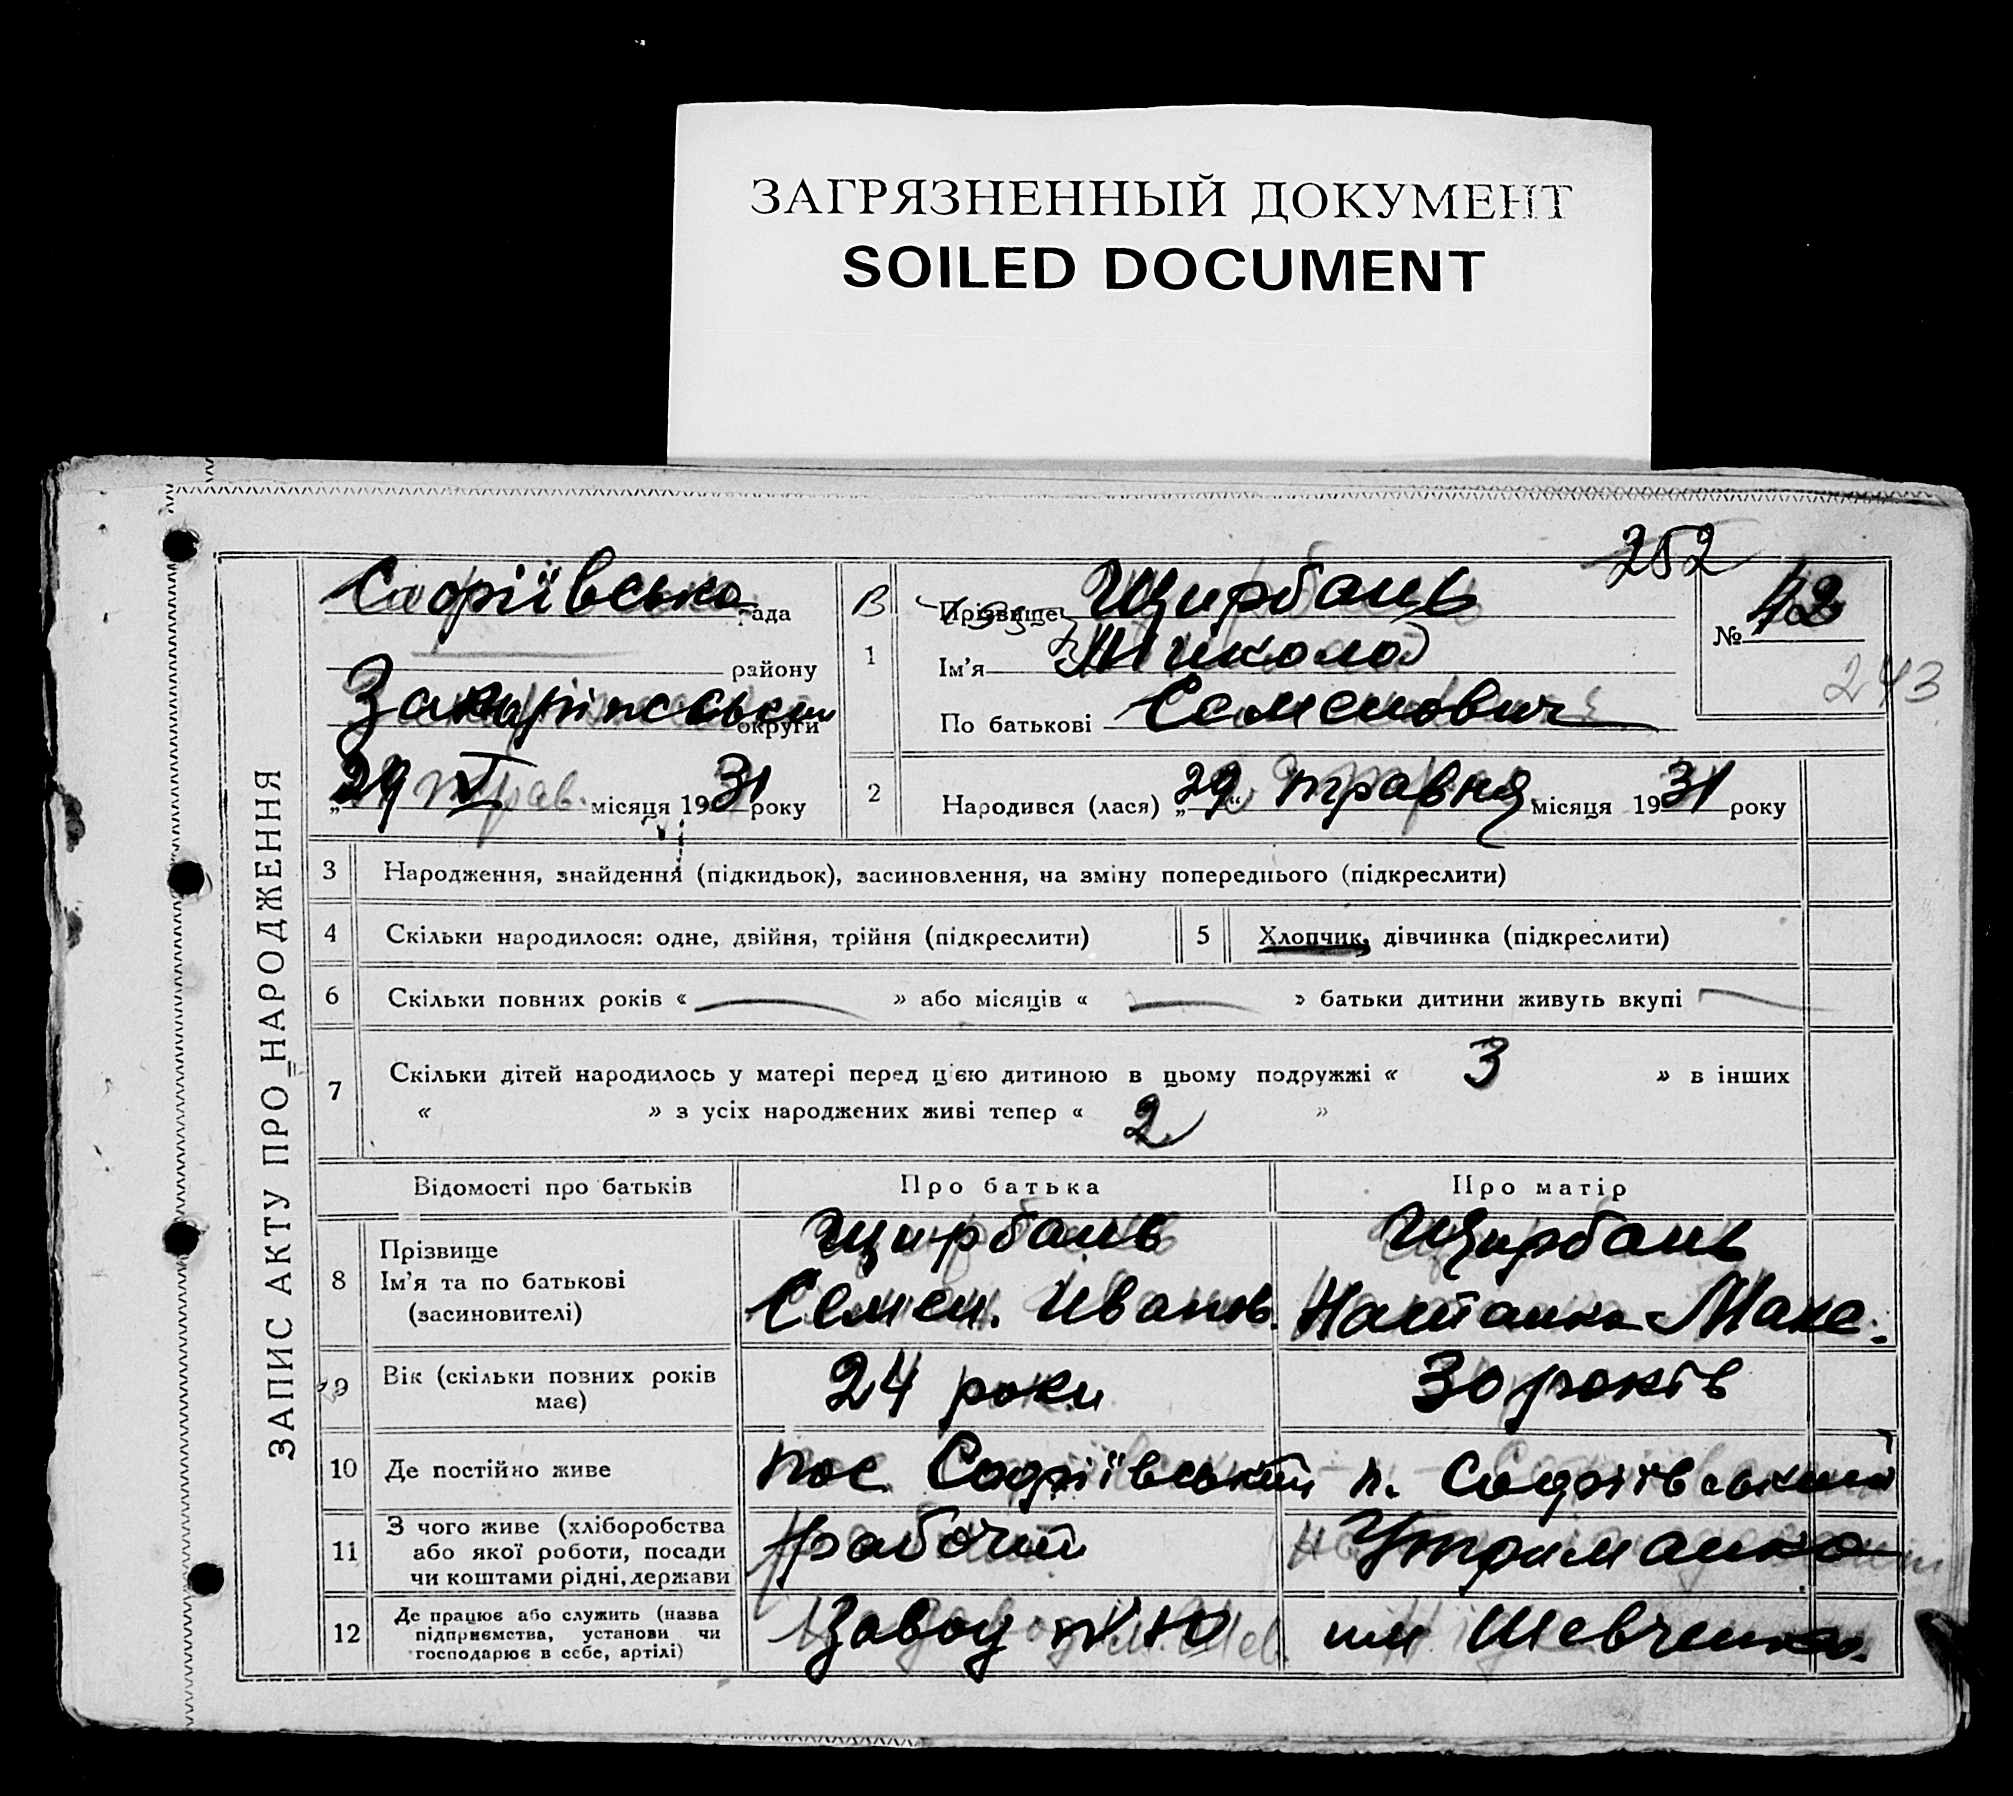 ЗАГРЯЗНЕННЫЙ ДОКУМЕНТ
SOILED DOCUMENT
252
ЗАПИС АКТУ ПРО НАРОДЖЕННЯ
Софіївська рада
району
округи
29 V місяця 1931 року
В
1 Прізвище Щирбань
Ім'я Микола
По батькові Семенович
№ 42
243
2 Народився (лася) „29“ травня місяця 1931 року
3 Народження, знайдення (підкидьок), засиновлення, на зміну попереднього (підкреслити)
4 Скільки народилося: одне, двійня, трійня (підкреслити)
5 Хлопчик, дівчинка (підкреслити)
6 Скільки повних років « — » або місяців « — » батьки дитини живуть вкупі —
7 Скільки дітей народилось у матері перед цією дитиною в цьому подружжі « 3 » в інших
« » з усіх народжених живі тепер « 2 »
Відомості про батьків Про батька Про матір
8 Прізвище
Ім'я та по батькові
(засиновителі)
Щирбань
Семен. Иванов.
Щирбань
Макс.
9 Вік (скільки повних років
має)
24 роки
30 років
10 Де постійно живе
пос Софіївський
п. Софіївський
11 З чого живе (хліборобства
або якої роботи, посади
чи коштами рідні, держави
рабочий
Утриманка
12 Де працює або служить (назва
підприємства, установи чи
господарює в себе, артілі)
Завод
им Шевченка.